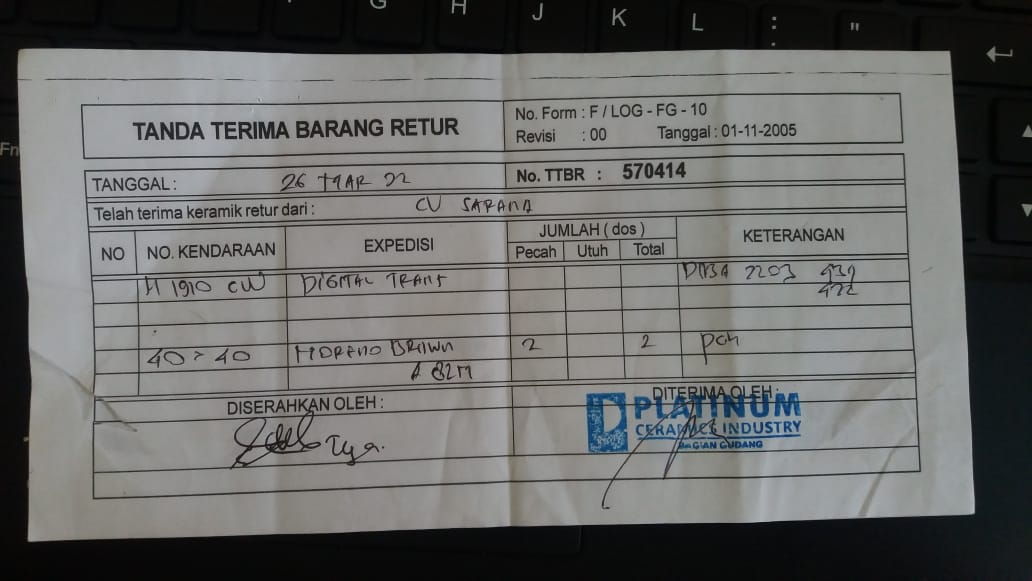 TANDA TERIMA BARANG RETUR
No. Form : F / LOG - FG - 10
Revisi : 00 Tanggal : 01-11-2005
TANGGAL : 26 MAR 22
No. TTBR : 570414
Telah terima keramik retur dari : CV SARANA
NO NO. KENDARAAN EXPEDISI JUMLAH ( dos ) KETERANGAN
Pecah Utuh Total
H 1910 CW DIGITAL TRANS 2203
40 x 40 MORENO BROWN 2 2 pch
DISERAHKAN OLEH :
DITERIMA OLEH :
Tya.
PLATINUM
CERAMICS INDUSTRY
BAGIAN GUDANG
G H J K L : ; "
Fn